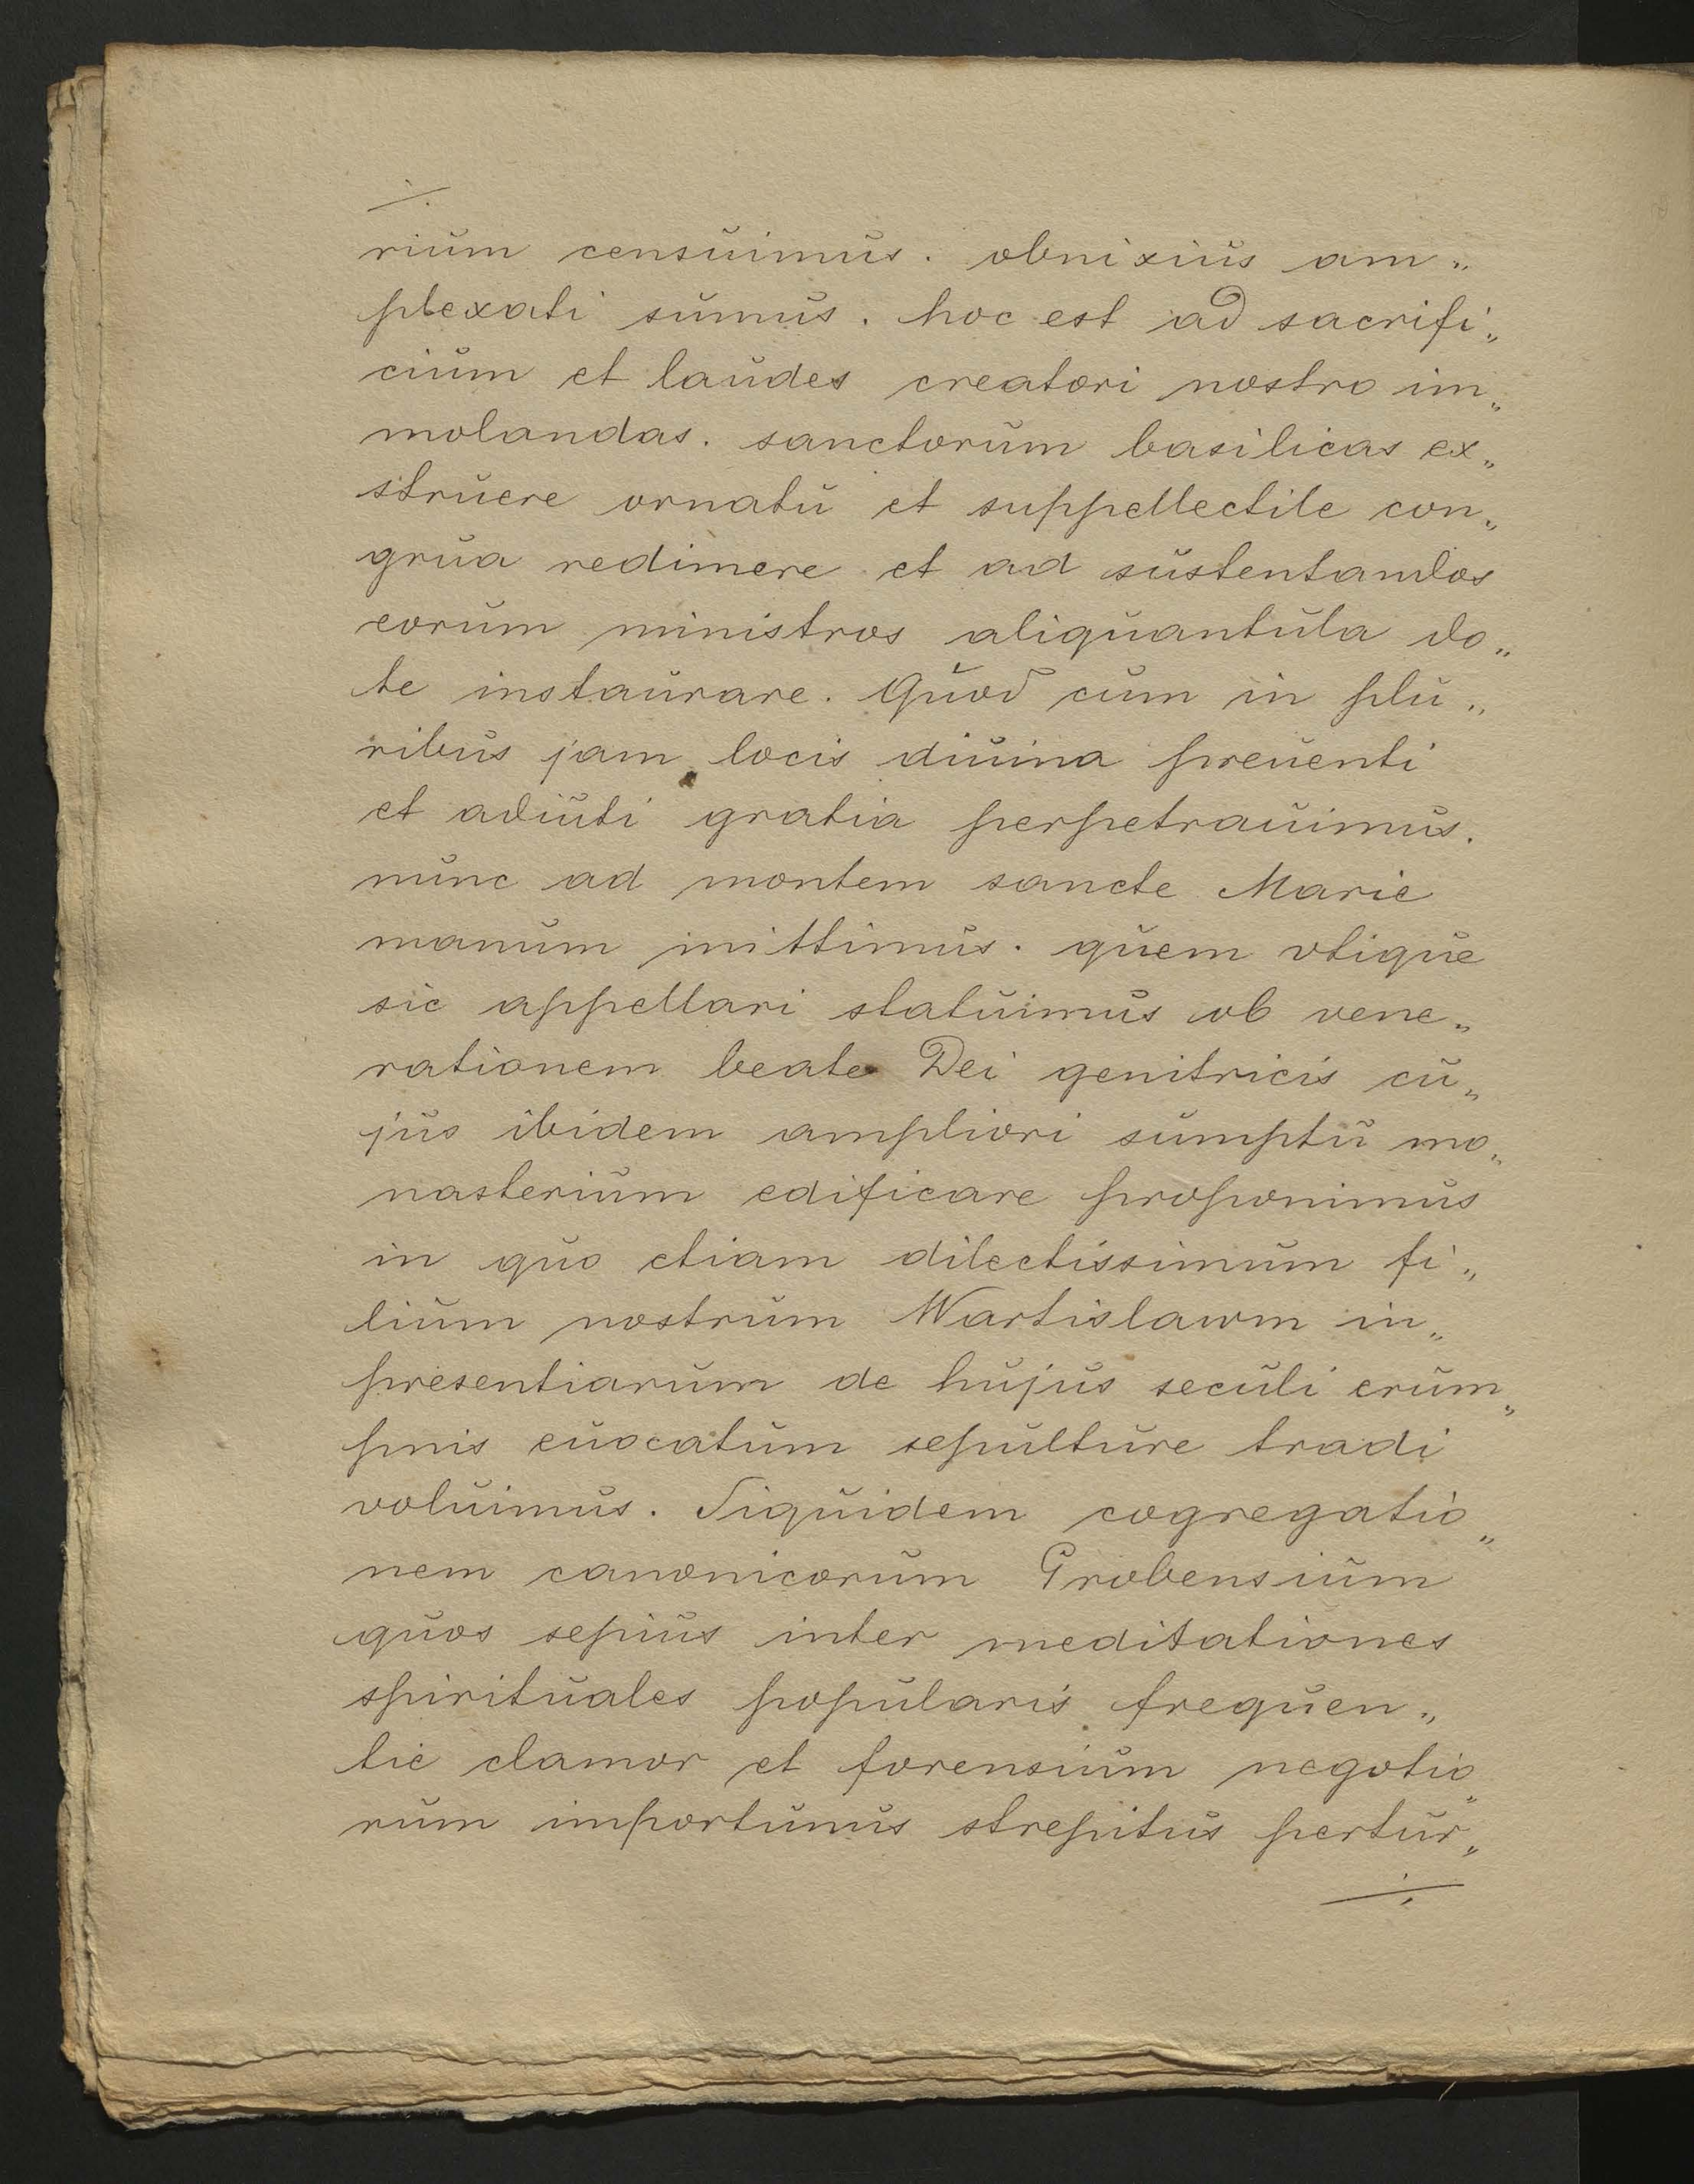 ./.
rium censuimus. obnixius am„
plexati sumus. hoc est ad sacrifi„
cium et laudes creatori nostro im„
molandas. sanctorum basilicas ex„
struere ornatu et suppellectile con„
grua redimere et ad sustentandos
eorum ministros aliquantula do„
te instaurare. Quod cum in plu„
ribus jam locis diuina preuenti
et adiuti gratia perpetrauimus.
nunc ad montem sancte Marie
manum mittimus. quem vtique
sic appellari statuimus ob vene„
rationem beate Dei genitricis cu„
jus ibidem ampliori sumptu mo„
nasterium edificare proponimus
in quo etiam dilectissimum fi„
lium nostrum Wartislawm in„
presentiarum de hujus seculi erum„
pnis euocatum sepulture tradi
voluimus. Siquidem cogregatio„
nem canonicorum Grobensium
quos sepius inter meditationes
spirituales popularis frequen„
tie clamor et forensium negotio„
rum importunus strepitus pertur„
./.